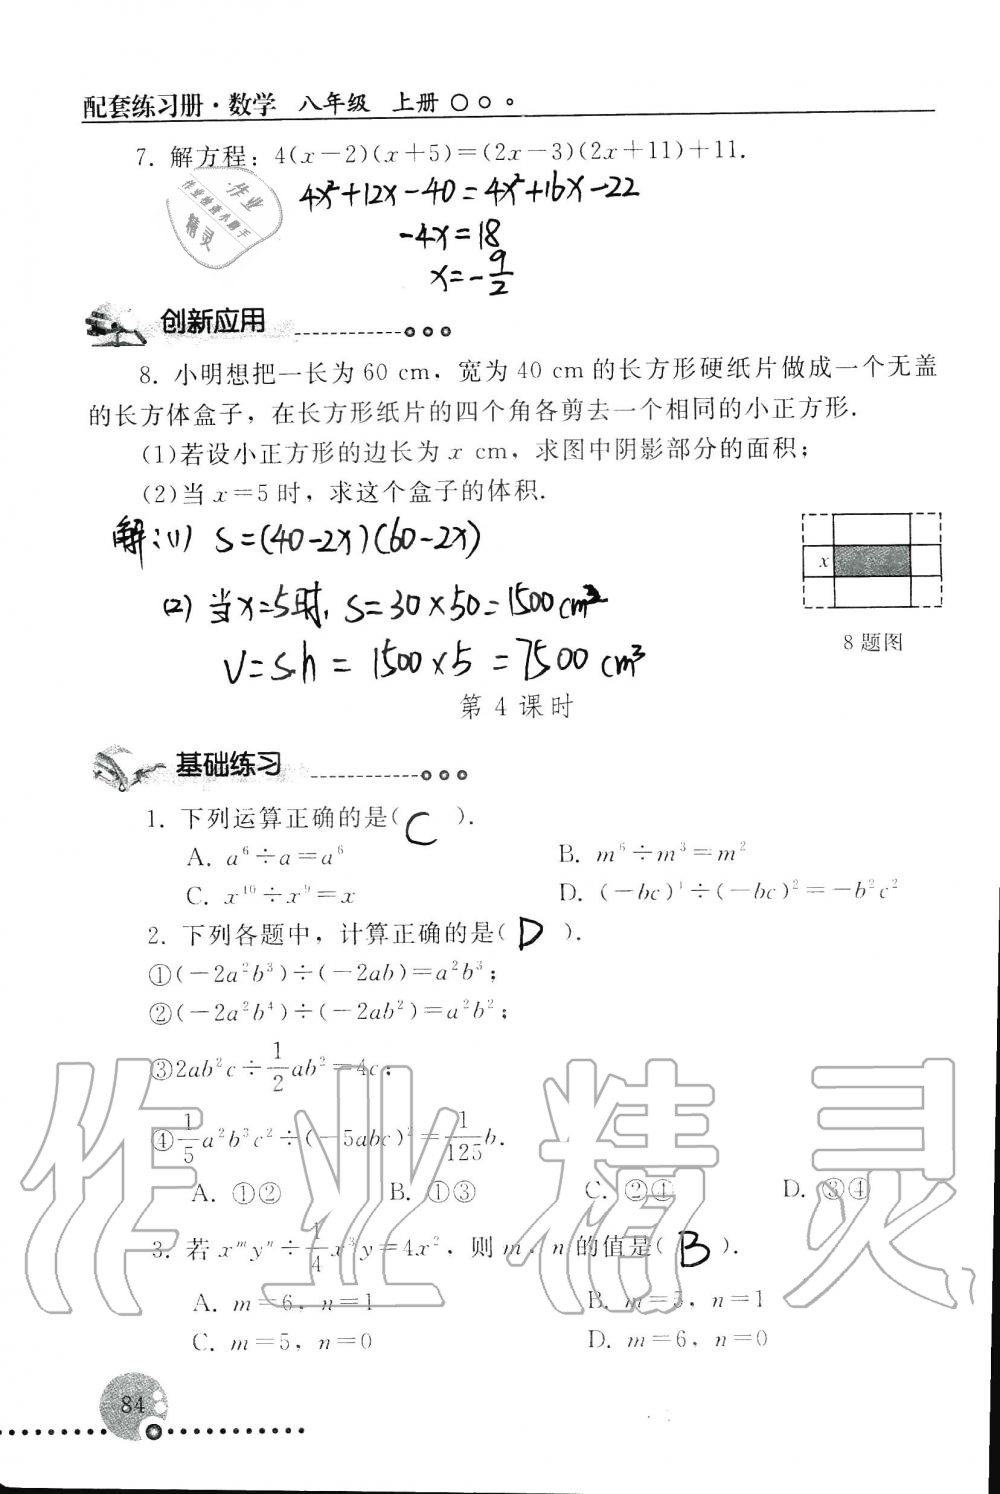 配套练习册·数学 八年级 上册
7. 解方程：4(x－2)(x＋5)＝(2x－3)(2x＋11)＋11.
4x²+12x-40=4x²+16x-22
-4x=18
x=-9/2
创新应用
8. 小明想把一长为 60 cm，宽为 40 cm 的长方形硬纸片做成一个无盖
的长方体盒子，在长方形纸片的四个角各剪去一个相同的小正方形.
(1)若设小正方形的边长为 x cm，求图中阴影部分的面积；
(2)当 x＝5 时，求这个盒子的体积.
解：(1) S=(40-2x)(60-2x)
(2) 当x=5时, S=30×50=1500cm²
V=S.h=1500×5=7500cm³
x
8 题图
第 4 课时
基础练习
1. 下列运算正确的是( C ).
A. a⁶÷a＝a⁶ B. m⁶÷m³＝m²
C. x¹⁰÷x⁹＝x D. (－bc)⁴÷(－bc)²＝－b²c²
2. 下列各题中，计算正确的是( D ).
①(－2a²b³)÷(－2ab)＝a²b³；
②(－2a²b⁴)÷(－2ab²)＝a²b²；
③2ab²c÷1/2ab²＝4c；
④1/5a²b³c²÷(－5abc)²＝1/125b.
A. ①② B. ①③ C. ②④ D. ③④
3. 若 xᵐyⁿ÷1/4x³y＝4x²，则 m、n 的值是( B ).
A. m＝6，n＝1 B. m＝5，n＝1
C. m＝5，n＝0 D. m＝6，n＝0
84
作业精灵